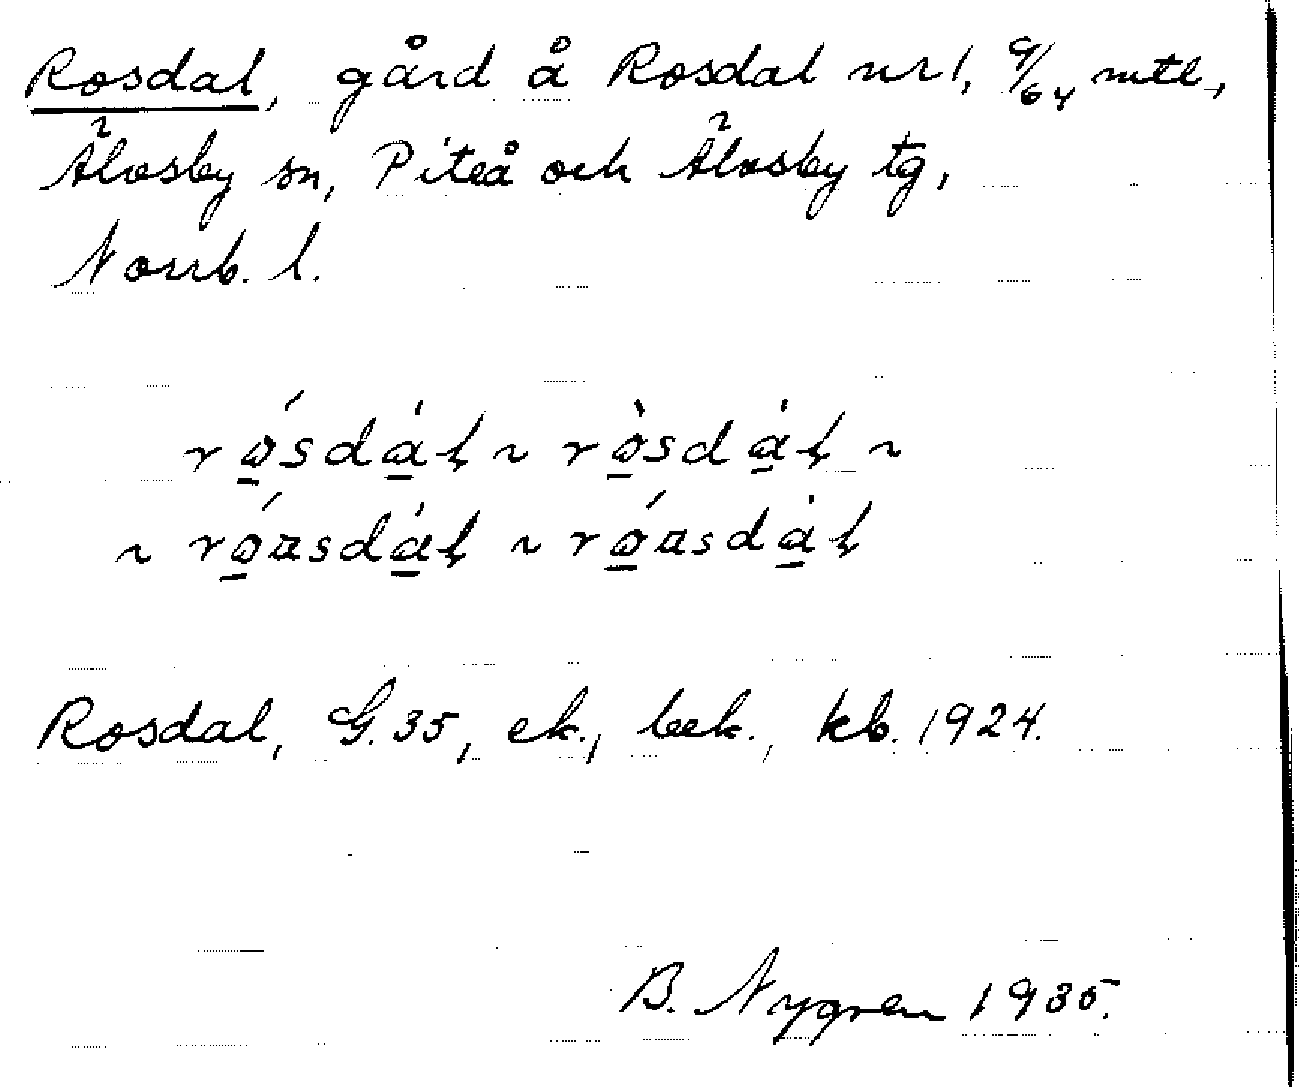 Rosdal, gård å Rosdal nr 1, 9/64 mtl.,
Älvsby sn, Piteå och Älvsby tg,
Norrb. l.
rǫ́sdą̀ł ~ rǫ̀sdą̀ł ~
~ rǫ́ɑsdą̀ł ~ rǫ́ɑsdą̀ł
Rosdal, G. 35, ek., bek., kb. 1924.
B. Nygren 1935.